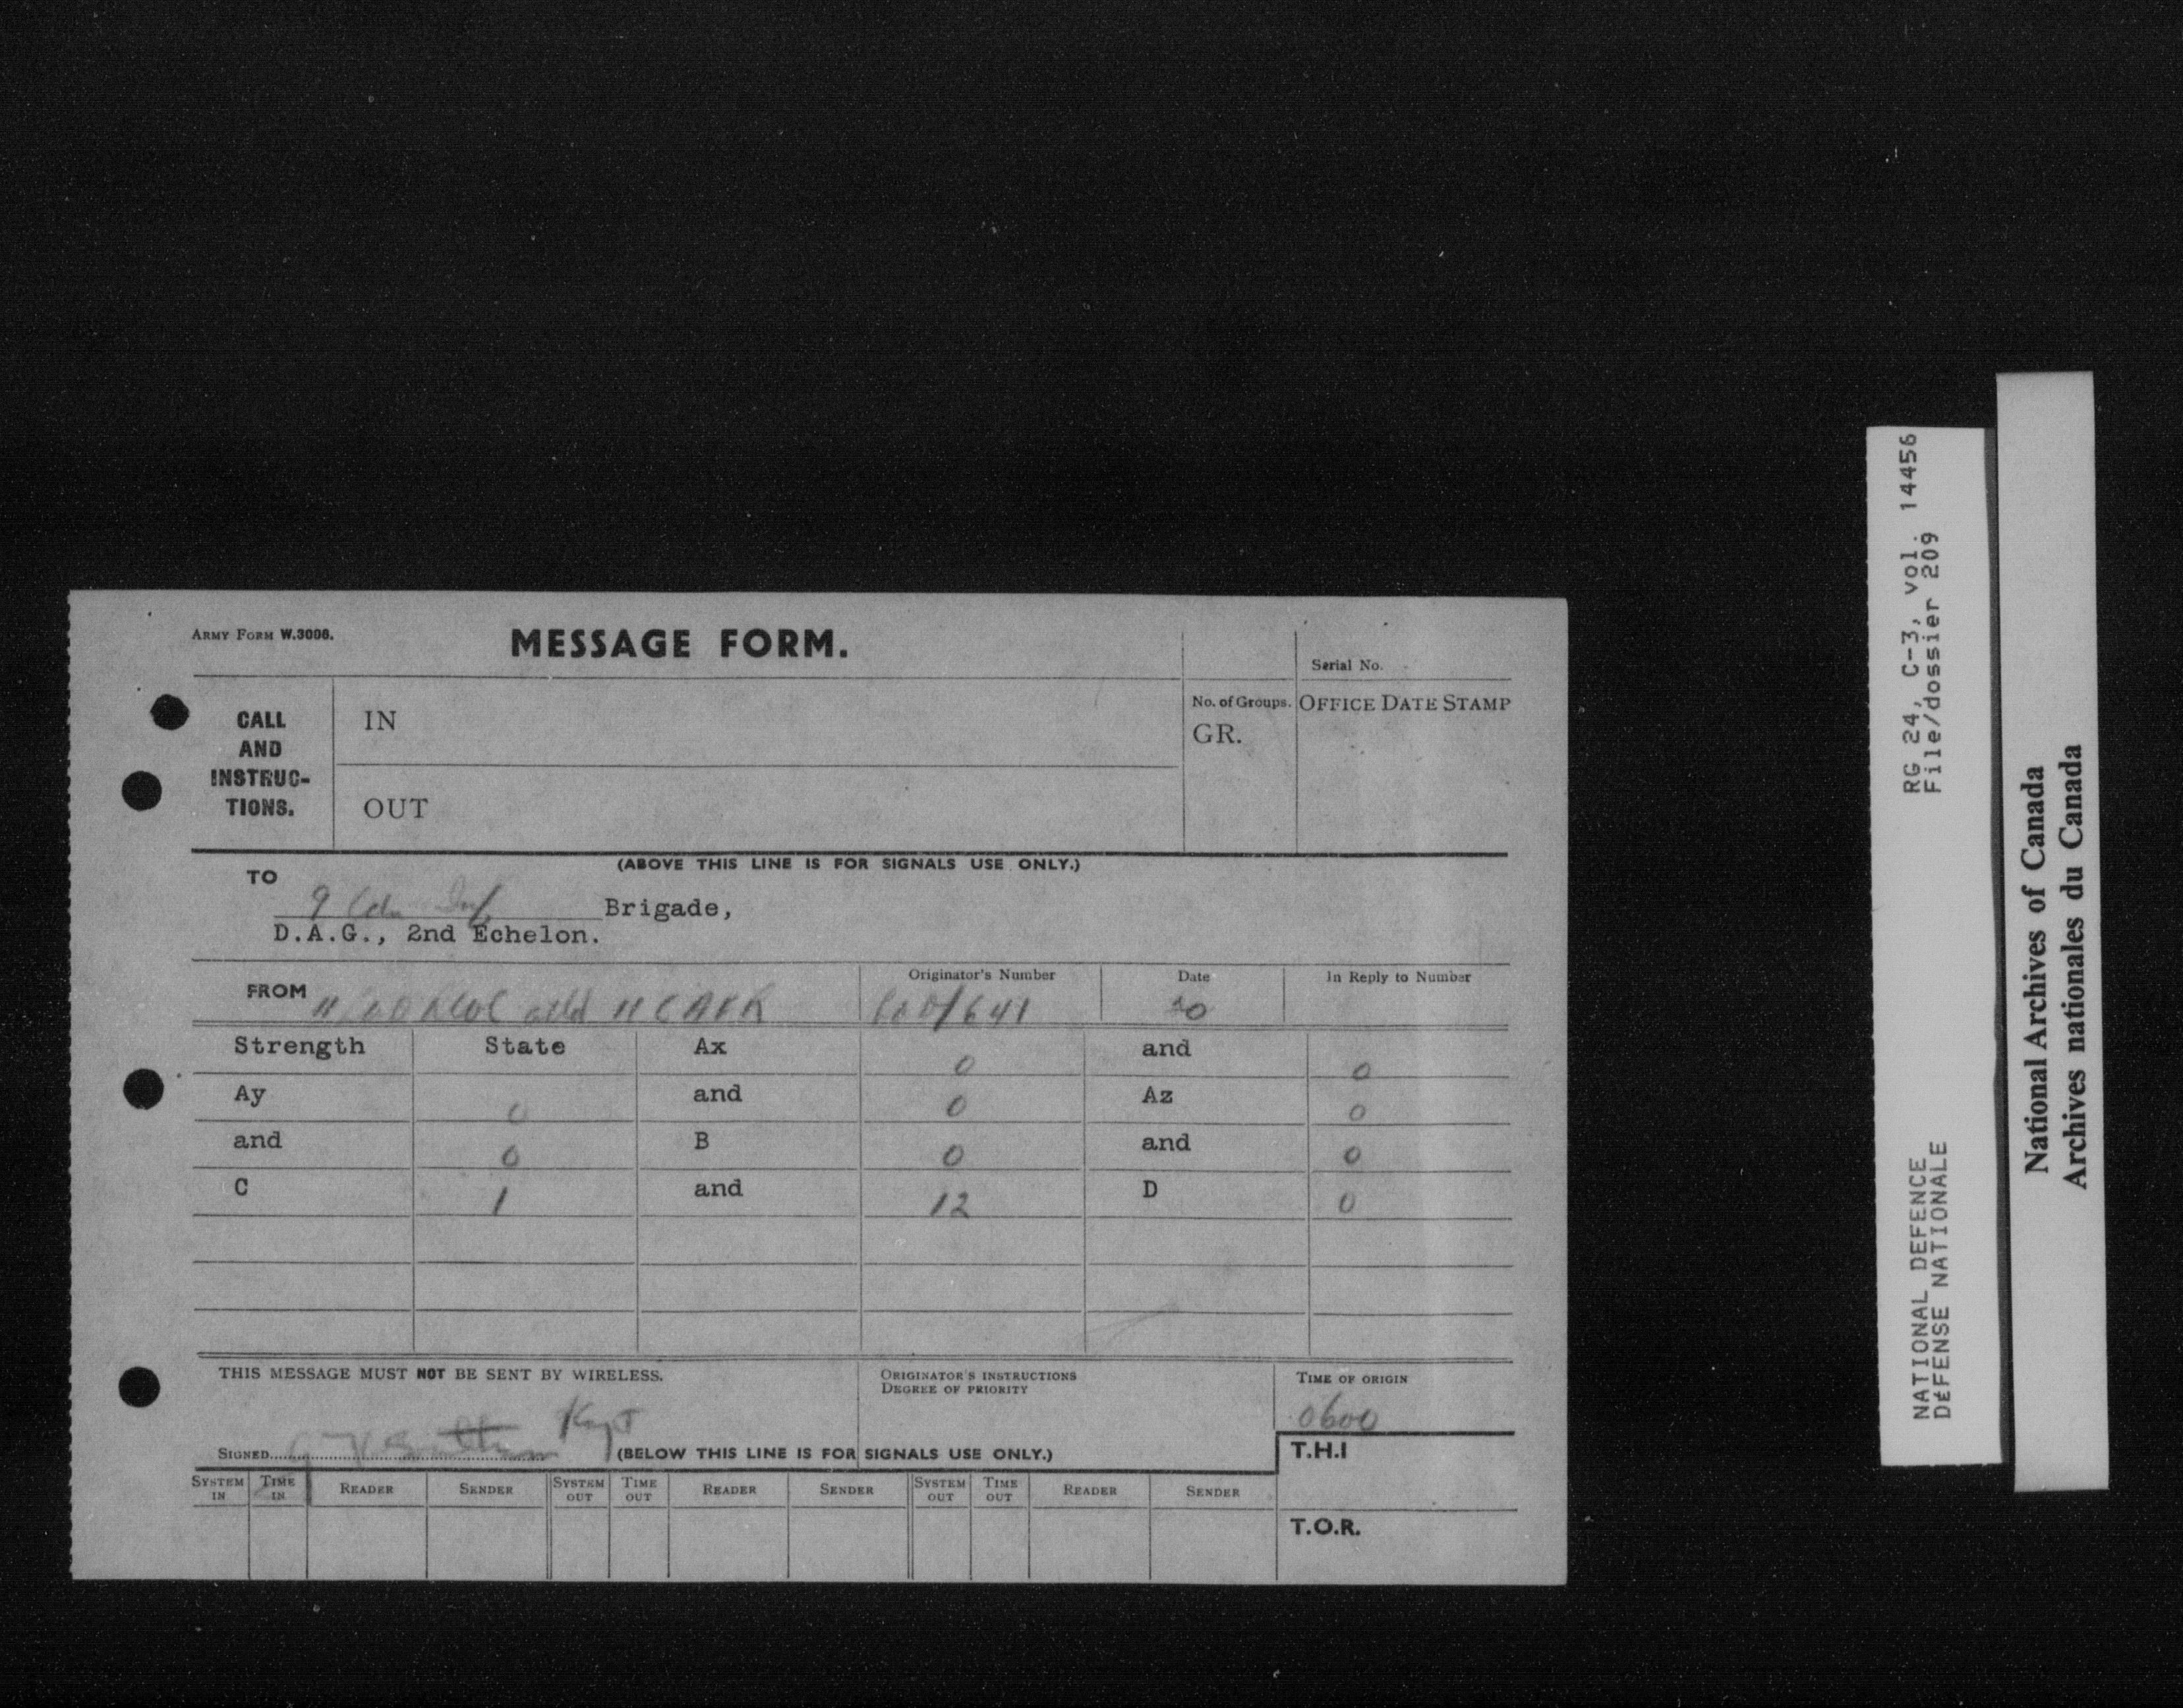 ARMY FORM W.3006.
MESSAGE FORM.
Serial No.
CALL AND INSTRUC-TIONS.
IN
No. of Groups.
GR.
OFFICE DATE STAMP
OUT
(ABOVE THIS LINE IS FOR SIGNALS USE ONLY.)
TO
9 Cdn Inf Brigade,
D.A.G., 2nd Echelon.
Originator's Number
Date
In Reply to Number
FROM
/641
20
Strength State Ax 0 and 0
Ay 0 and 0 Az 0
and 0 B 0 and 0
C 1 and 12 D 0
THIS MESSAGE MUST NOT BE SENT BY WIRELESS.
ORIGINATOR'S INSTRUCTIONS
DEGREE OF PRIORITY
TIME OF ORIGIN
0600
SIGNED
(BELOW THIS LINE IS FOR SIGNALS USE ONLY.)
T.H.I
SYSTEM IN TIME IN READER SENDER SYSTEM OUT TIME OUT READER SENDER SYSTEM OUT TIME OUT READER SENDER
T.O.R.
RG 24, C-3, vol. 14456
File/dossier 209
NATIONAL DEFENCE
DÉFENSE NATIONALE
National Archives of Canada
Archives nationales du Canada